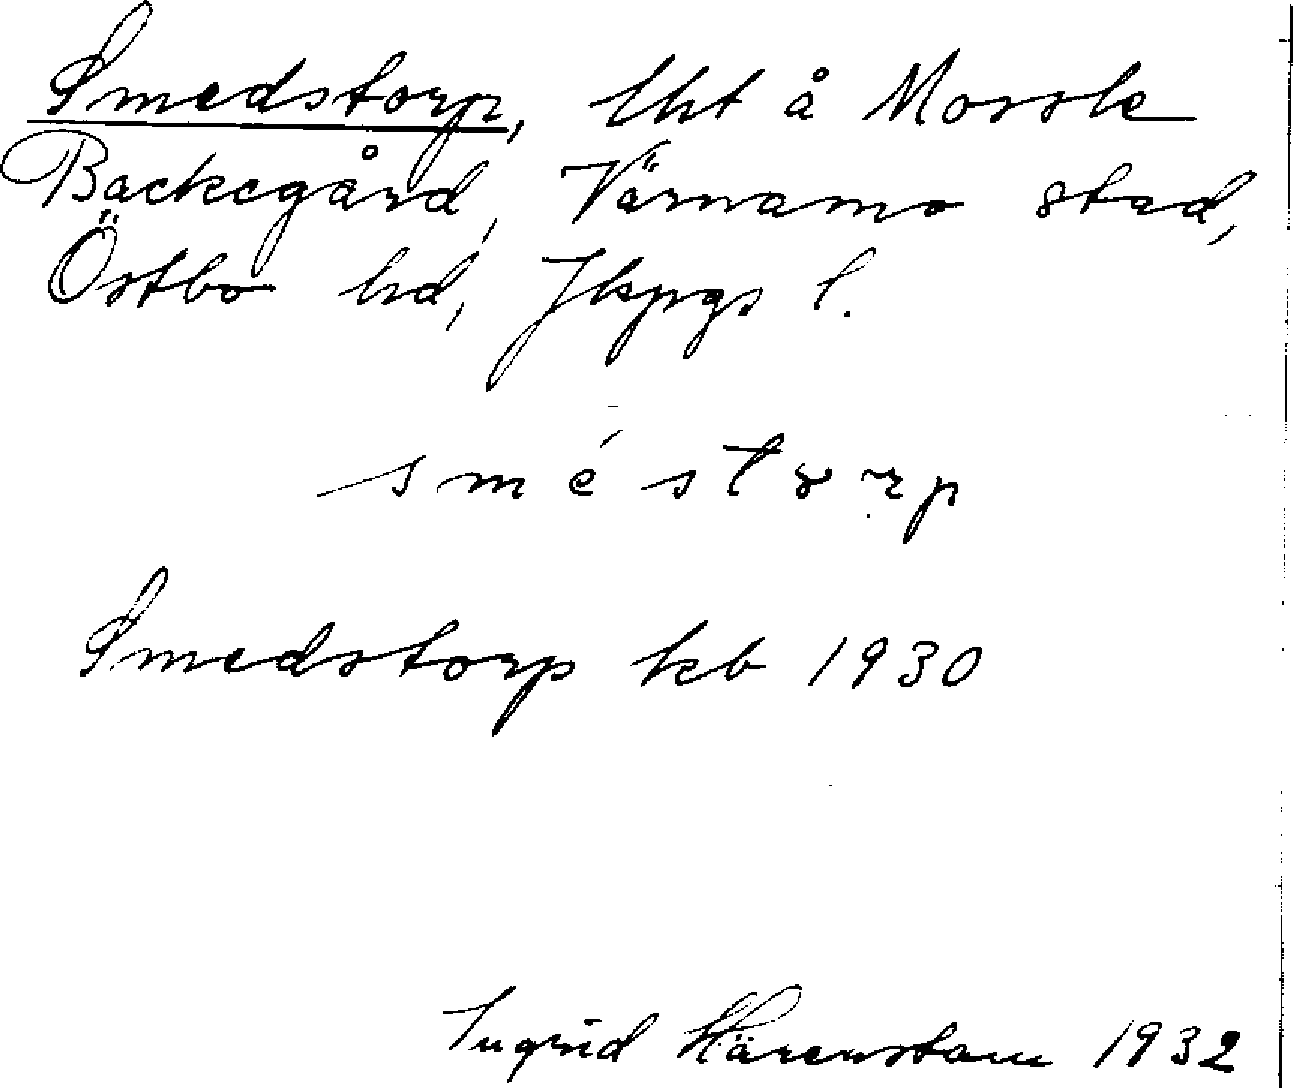 Smedstorp, lht å Mossle
Backegård, Värnamo stad,
Östbo hd, Jkpgs l.
sméstorp
Smedstorp kb 1930
Ingrid Härenstam 1932